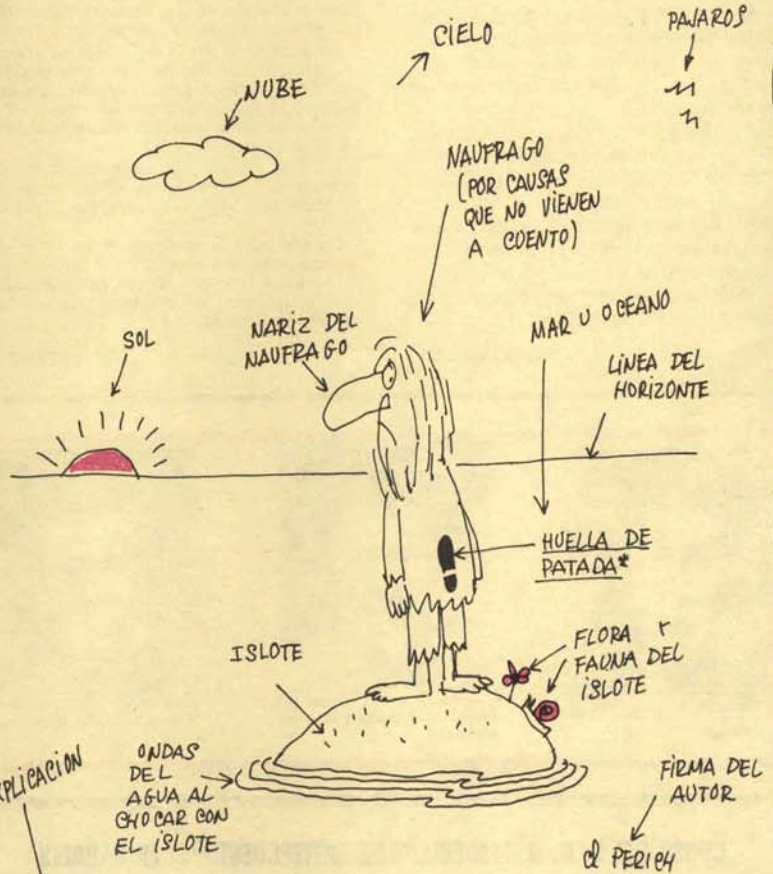 CIELO
PAJAROS
NUBE
NAUFRAGO
(POR CAUSAS
QUE NO VIENEN
A CUENTO)
SOL
NARIZ DEL
NAUFRAGO
MAR U OCEANO
LINEA DEL
HORIZONTE
HUELLA DE
PATADA*
ISLOTE
FLORA Y
FAUNA DEL
ISLOTE
ONDAS
DEL
AGUA AL
CHOCAR CON
EL ISLOTE
FIRMA DEL
AUTOR
PERICH